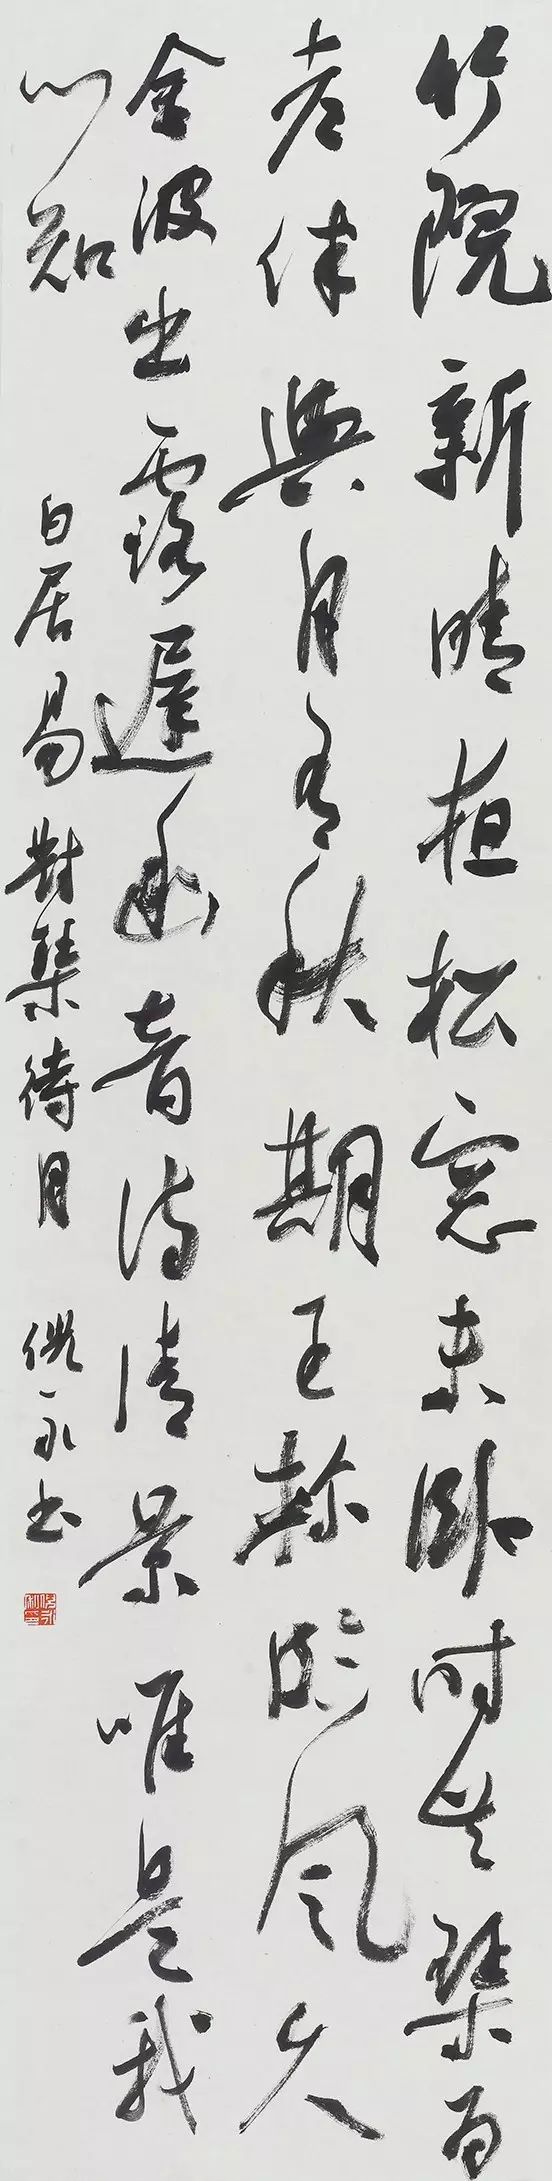 竹院新晴亱松窓未卧時共琴為
老伴與月有秋期玉軫臨風久
金波出霧遲幽音待清景唯是我
心知
白居易對琴待月 永书